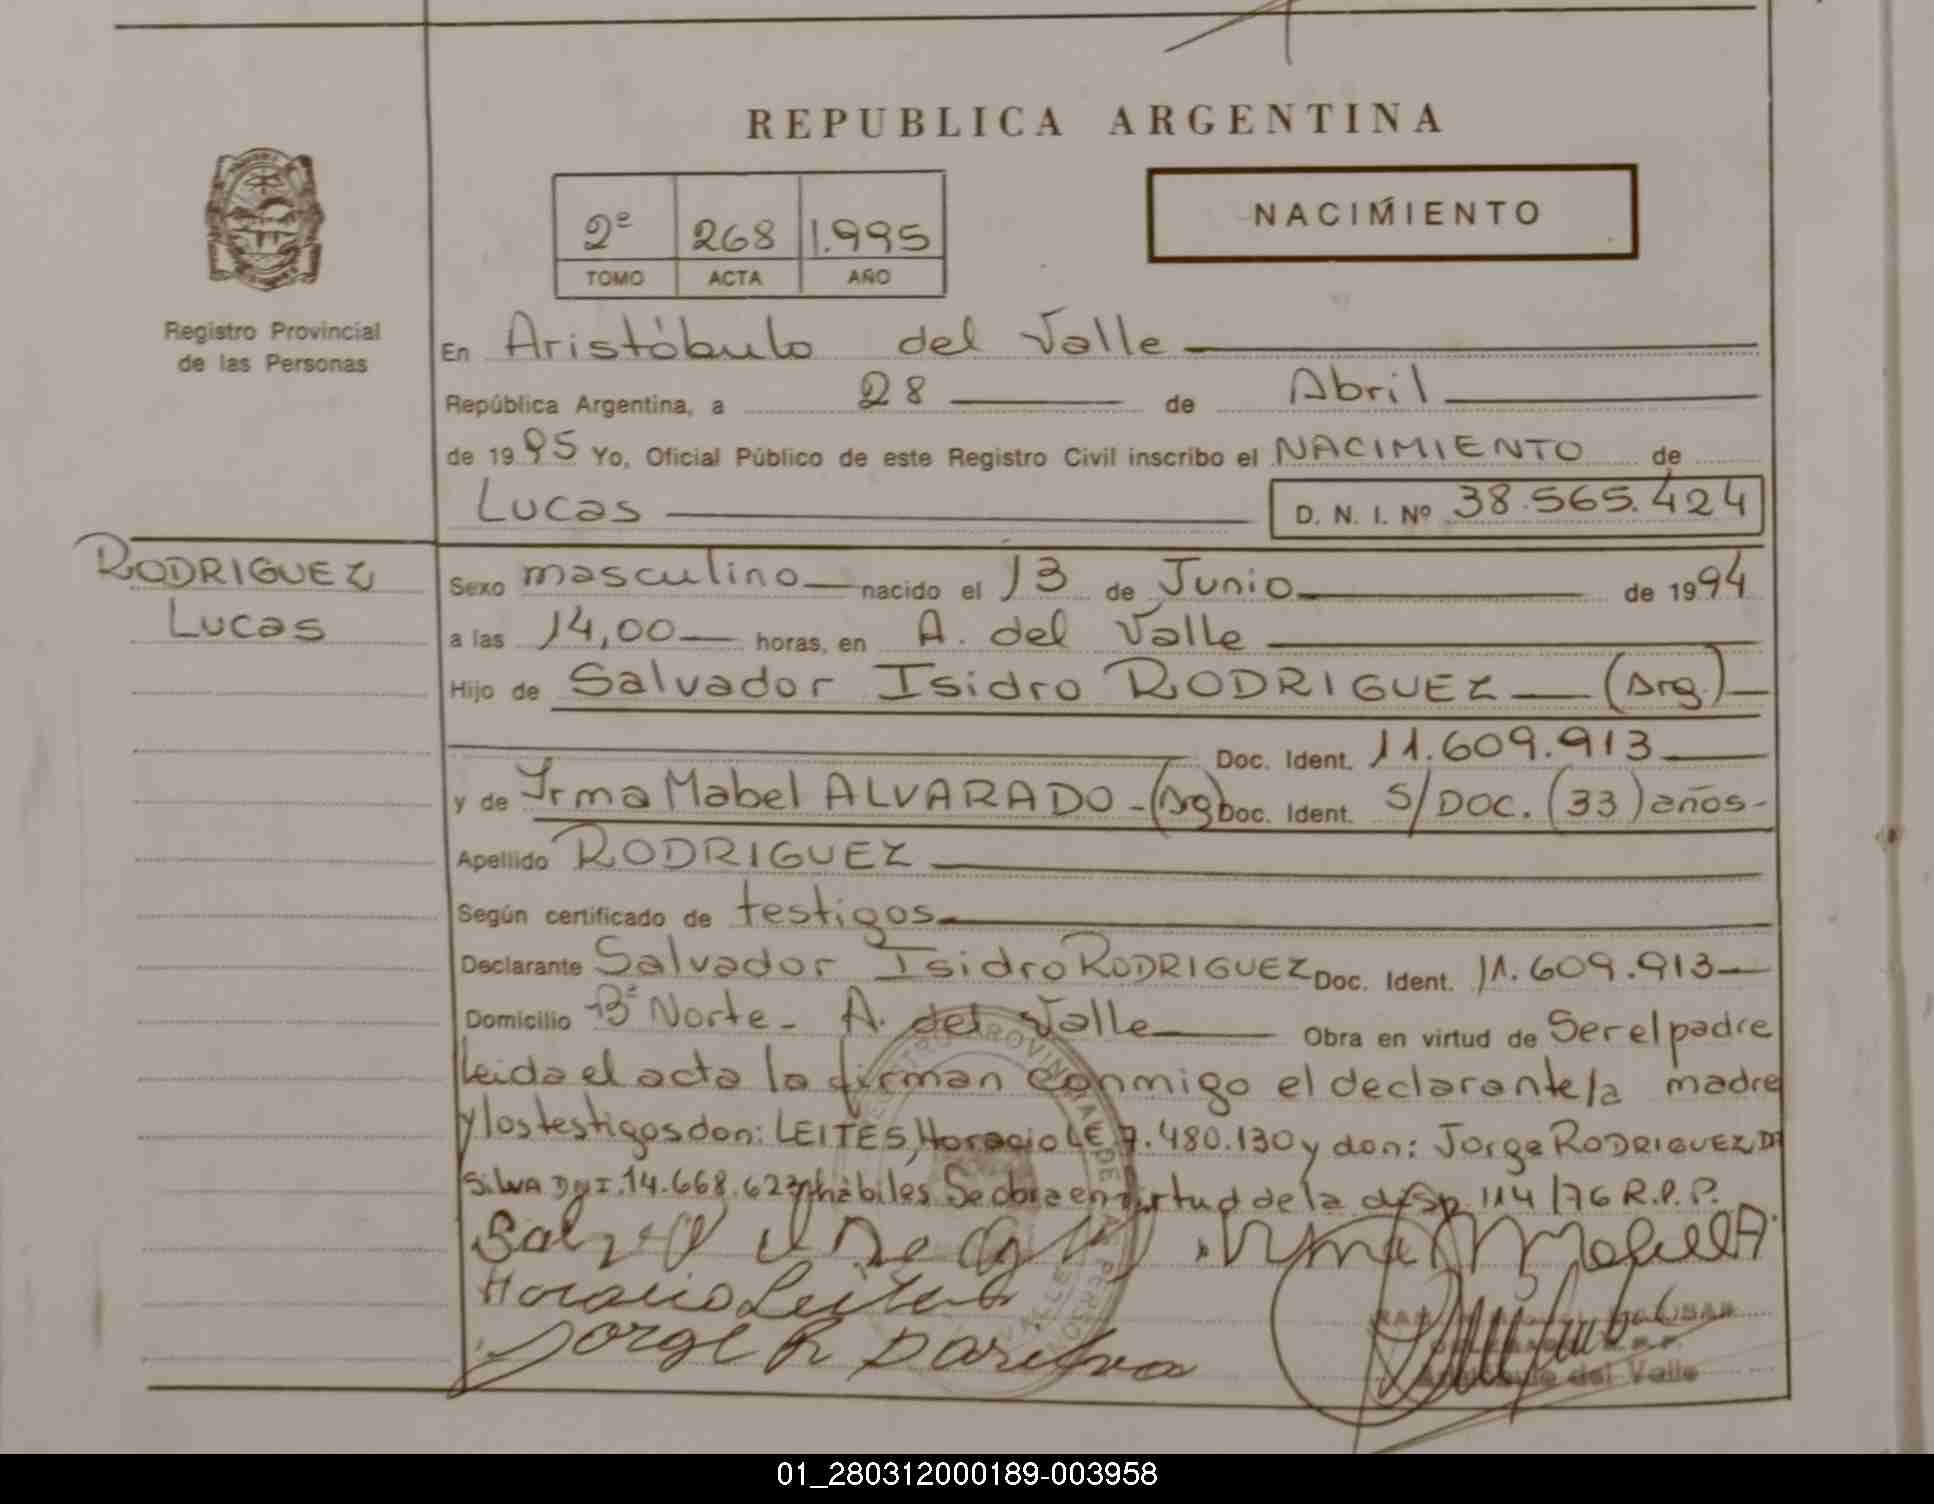 REPUBLICA ARGENTINA
2º 268 1.995
TOMO ACTA AÑO
NACIMIENTO
Registro Provincial
de las Personas
En Aristóbulo del Valle
República Argentina, a 28 de Abril
de 1995 Yo, Oficial Público de este Registro Civil inscribo el NACIMIENTO de
Lucas D. N. I. Nº 38.565.424
RODRIGUEZ
Lucas
Sexo masculino nacido el 13 de Junio de 1994
a las 14,00 horas, en A. del Valle
Hijo de Salvador Isidro RODRIGUEZ (Arg.)
Doc. Ident. 11.609.913
y de Yrma Mabel ALVARADO - (Arg) Doc. Ident. S/DOC. (33) años-
Apellido RODRIGUEZ
Según certificado de testigos
Declarante Salvador Isidro RODRIGUEZ Doc. Ident. 11.609.913
Domicilio Bº Norte - A. del Valle Obra en virtud de Ser el padre
leida el acta la firman conmigo el declarante la madre
y los testigos don: LEITES, Horacio LE 7.480.130 y don: Jorge RODRIGUEZ DA
SILVA DNI. 14.668.623 hábiles. Se obra en virtud de la disp. 114/76 R.P.P.
Yrma Mabel A.
Horacio Leites
Jorge R Da Silva
del Valle
01_280312000189-003958